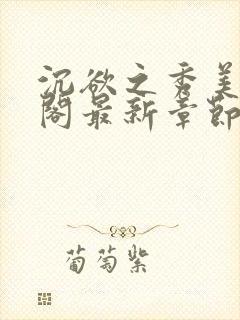 沉欲之秀美
阁最新章节
葡萄紫